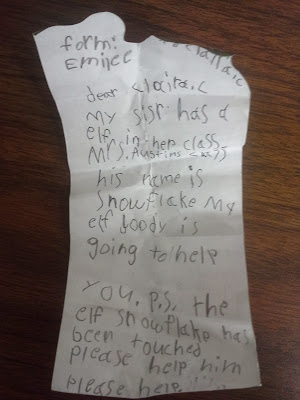 form:
Emilee
dear claira.c
My sisr has a
elf in her class
Mrs. Austins class
his name is
Snowflake My
elf Joody is
going to help
You. P.S. the
elf snowflake has
been touched
please help him
please help